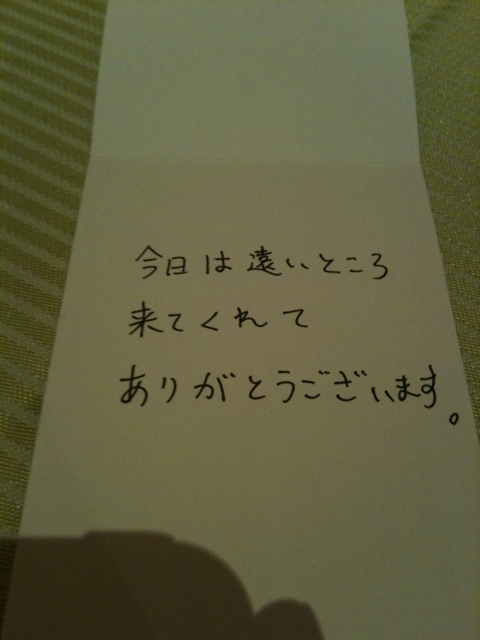 今日は遠いところ
来てくれて
ありがとうございます。